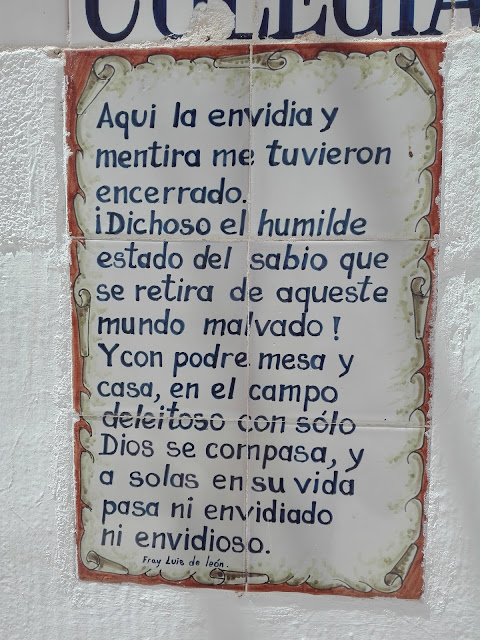 COLEGIA
Aqui la envidia y
mentira me tuvieron
encerrado.
¡Dichoso el humilde
estado del sabio que
se retira de aqueste
mundo malvado!
Ycon podre mesa y
casa, en el campo
deleitoso con sólo
Dios se compasa, y
a solas en su vida
pasa ni envidiado
ni envidioso.
Fray Luis de león.